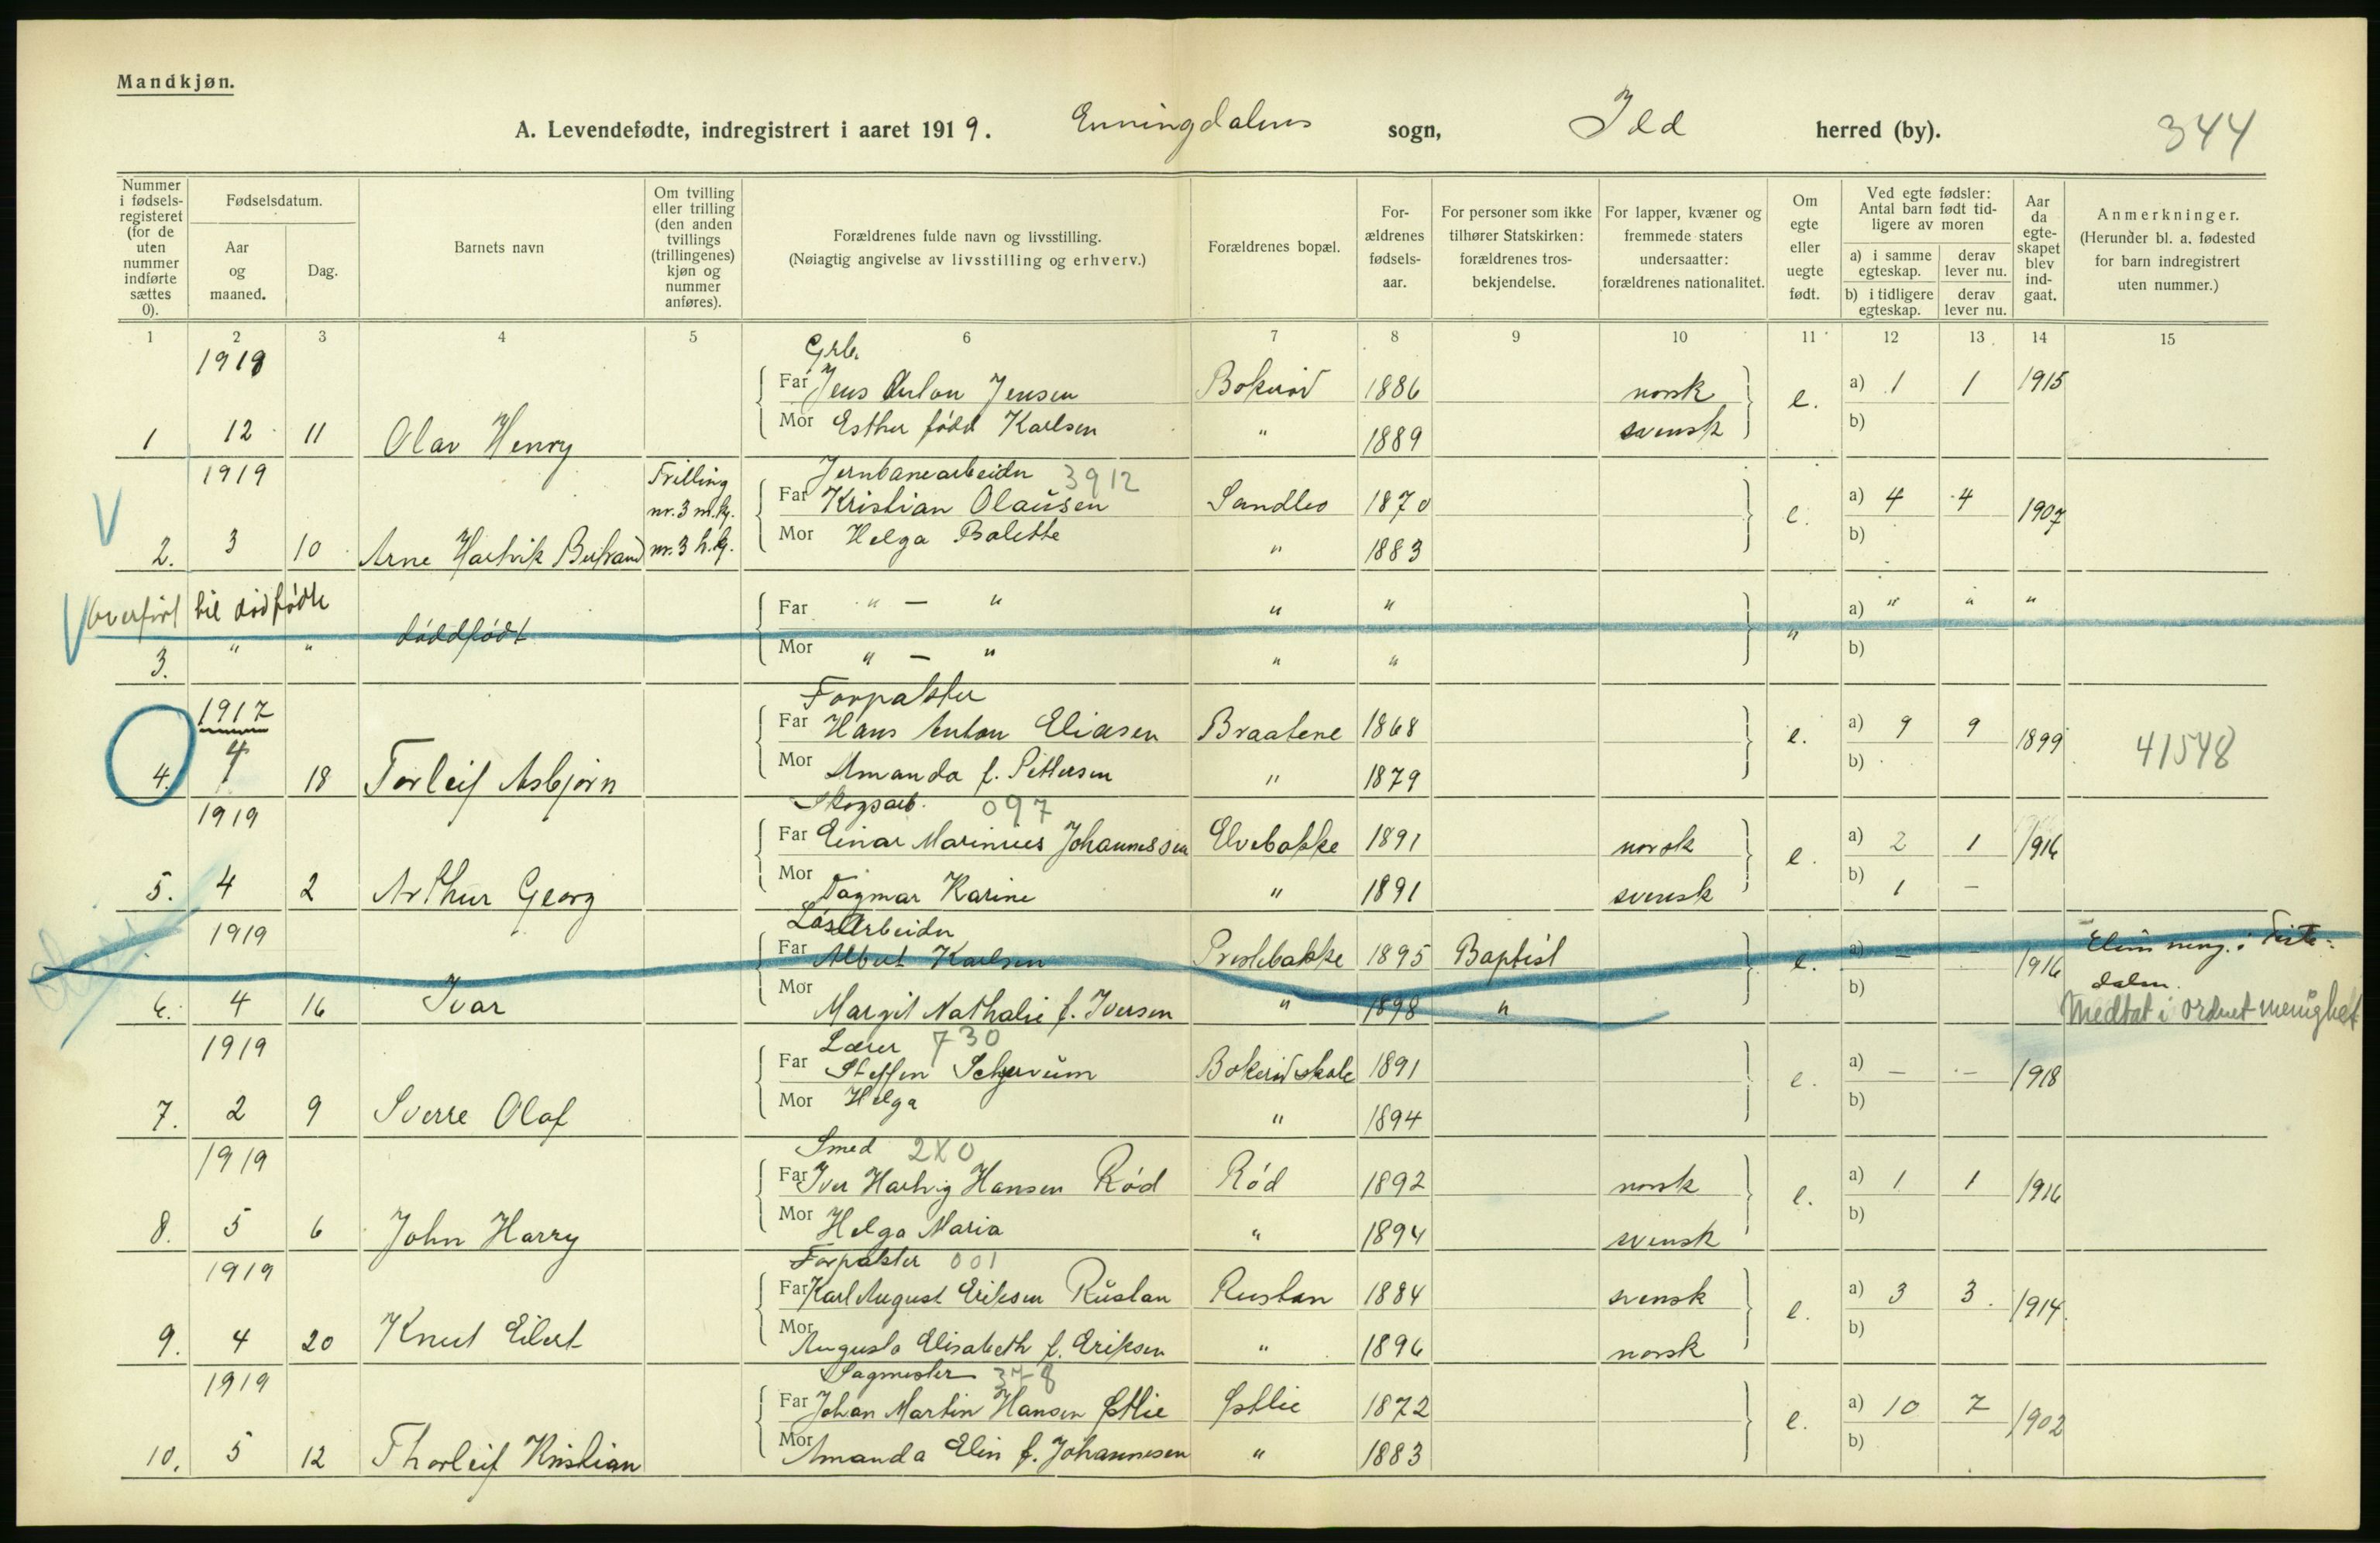 Mandkjøn.
A. Levendefødte, indregistrert i aaret 1919. Enningdalens sogn, Idd herred (by). 344
Nummer i fødsels-registeret (for de uten nummer indførte sættes 0).
Fødselsdatum.
Aar og maaned.
Dag.
Barnets navn
Om tvilling eller trilling (den anden tvillings (trillingenes) kjøn og nummer anføres).
Forældrenes fulde navn og livsstilling.
(Nøiagtig angivelse av livsstilling og erhverv.)
Forældrenes bopæl.
For-ældrenes fødsels-aar.
For personer som ikke tilhører Statskirken: forældrenes tros-bekjendelse.
For lapper, kvæner og fremmede staters undersaatter: forældrenes nationalitet.
Om egte eller uegte født.
Ved egte fødsler: Antal barn født tid-ligere av moren
a) i samme egteskap.
derav lever nu.
b) i tidligere egteskap.
derav lever nu.
Aar da egte-skapet blev ind-gaat.
Anmerkninger.
(Herunder bl. a. fødested for barn indregistrert uten nummer.)
1 2 3 4 5 6 7 8 9 10 11 12 13 14 15
1918 Grb.
Far Jens Anton Jensen Bokerød 1886 norsk e. a) 1 1 1915
1 12 11 Olav Henry Mor Esther född Karlsen " 1889 svensk b)
1919 Trilling nr. 3 m.kj. nr. 3 h.kj. Jernbanearbeider 3912
Far Kristian Olausen Sandbo 1870 e. a) 4 4 1907
2. 3 10 Arne Hartvik Bertrand Mor Helga Bolette " 1883 b)
Overført til dødfødte
Far " — " " " " a) " " "
3. " " døddfødt Mor " — " " " b)
1917 Forpakter
Far Hans Anton Eliasen Braatene 1868 e. a) 9 9 1899 41548
4. 4 18 Torleif Asbjørn Mor Amanda f. Pettersen " 1879 b)
1919 Skogsarb. 097
Far Einar Marinius Johannessen Elvebakke 1891 norsk e. a) 2 1 1916
5. 4 2 Arthur Georg Mor Dagmar Karine " 1891 svensk b) 1 —
1919 Løsarbeider
Far Albert Karlsen Prestebakke 1895 Baptist e. a) — — 1916 Elim meng. i Tiste-dalen.
6. 4 16 Ivar Mor Margit Nathalie f. Iversen " 1898 " b) Medtat i ordnet menighet
1919 Lærer 730
Far Steffen Schjervum Bokerød skole 1891 e. a) — — 1918
7. 2 9 Sverre Olaf Mor Helga " 1894 b)
1919 Smed 2X0
Far Iver Hartvig Hansen Rød Rød 1892 norsk e. a) 1 1 1916
8. 5 6 John Harry Mor Helga Maria " 1894 svensk b)
1919 Forpakter 001
Far Karl August Eriksen Rustan Rustan 1884 svensk e. a) 3 3 1914
9. 4 20 Knut Eilert Mor Augusta Elisabeth f. Eriksen " 1896 norsk b)
1919 Sagmester 378
Far Johan Martin Hansen Østlie Østlie 1872 e. a) 10 7 1902
10. 5 12 Thorleif Kristian Mor Amanda Elin f. Johannesen " 1883 b)